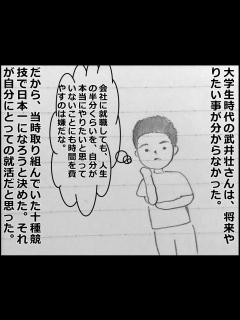 大学生時代の武井壮さんは、将来や
りたい事が分からなかった。
会社に就職しても、人生
の半分くらいを、自分が
本当にやりたいと思って
いないことにも時間を費
やすのは嫌だな。
だから、当時取り組んでいた十種競
技で日本一になろうと決めた。それ
が自分にとっての就活だと思った。